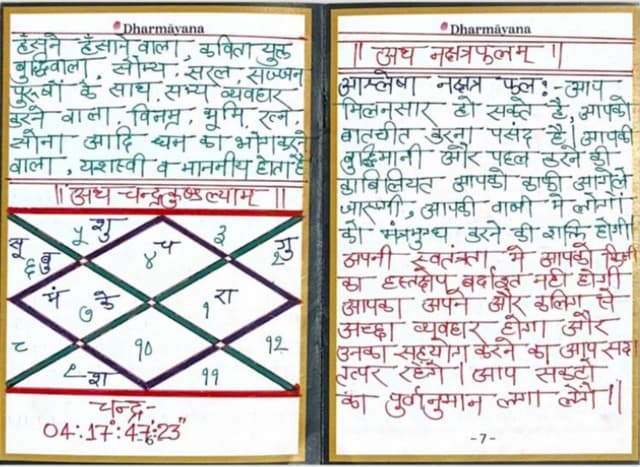 Dharmāyana
हँसने हँसाने वाला, कविता युक्त
बुद्धिवाला, सौम्य, सरल, सज्जन
पुरूषों के साथ सभ्य व्यवहार
करने वाला, विनम्र, भूमि, रत्न,
सोना आदि धन का भोग करने
वाला, यशस्वी व माननीय होता है
|| अथ चन्द्रकुण्डल्याम् ||
५ शु
च
४
३
गु
२
सू
६ बु
मं
७ के
१
रा
८
१०
१२
९ श
११
चन्द्र-
04:17:47:23"
Dharmāyana
|| अथ नक्षत्रफलम् ||
आश्लेषा नक्षत्र फल:- आप
मिलनसार हो सकते है, आपको
बातचीत करना पसंद है। आपकी
बुद्धिमानी और पहल करने की
काबिलियत आपको काफी आगे ले
जाएगी, आपकी वाणी मे लोगों
को मंत्रमुग्ध करने की शक्ति होगी
अपनी स्वतंत्रता मे आपको किसी
का हस्तक्षेप बर्दाश्त नही होगी
आपका अपने और कलिग से
अच्छा व्यवहार होगा और
उनका सहयोग करने का आप सदा
तत्पर रहेंगे। आप संकटो
का पुर्वानुमान लगा लेंगे ||
-7-